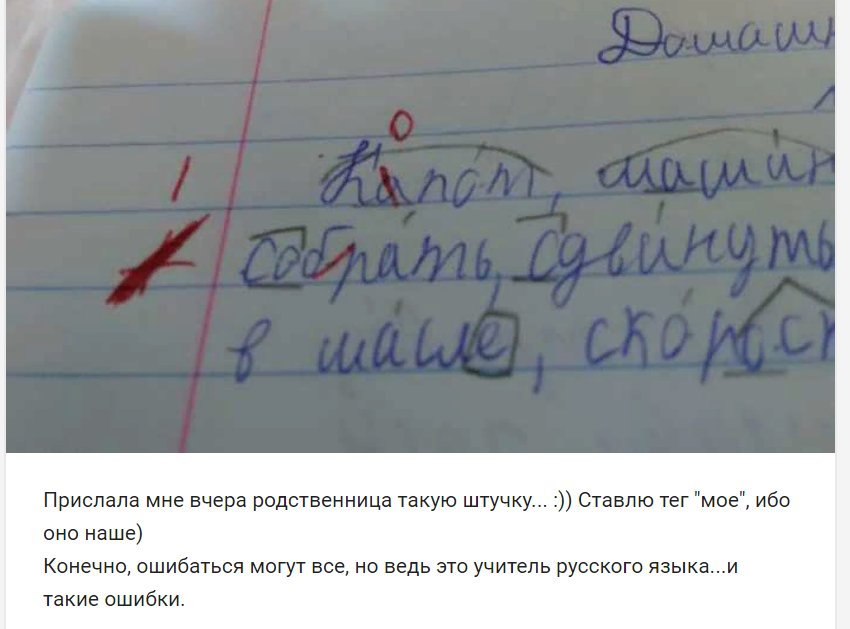 Домашн
о
Капо́т, маши́н
собра́ть, сдви́нуть
в ма́сле, ско́рос
Прислала мне вчера родственница такую штучку... :)) Ставлю тег "мое", ибо
оно наше)
Конечно, ошибаться могут все, но ведь это учитель русского языка...и
такие ошибки.